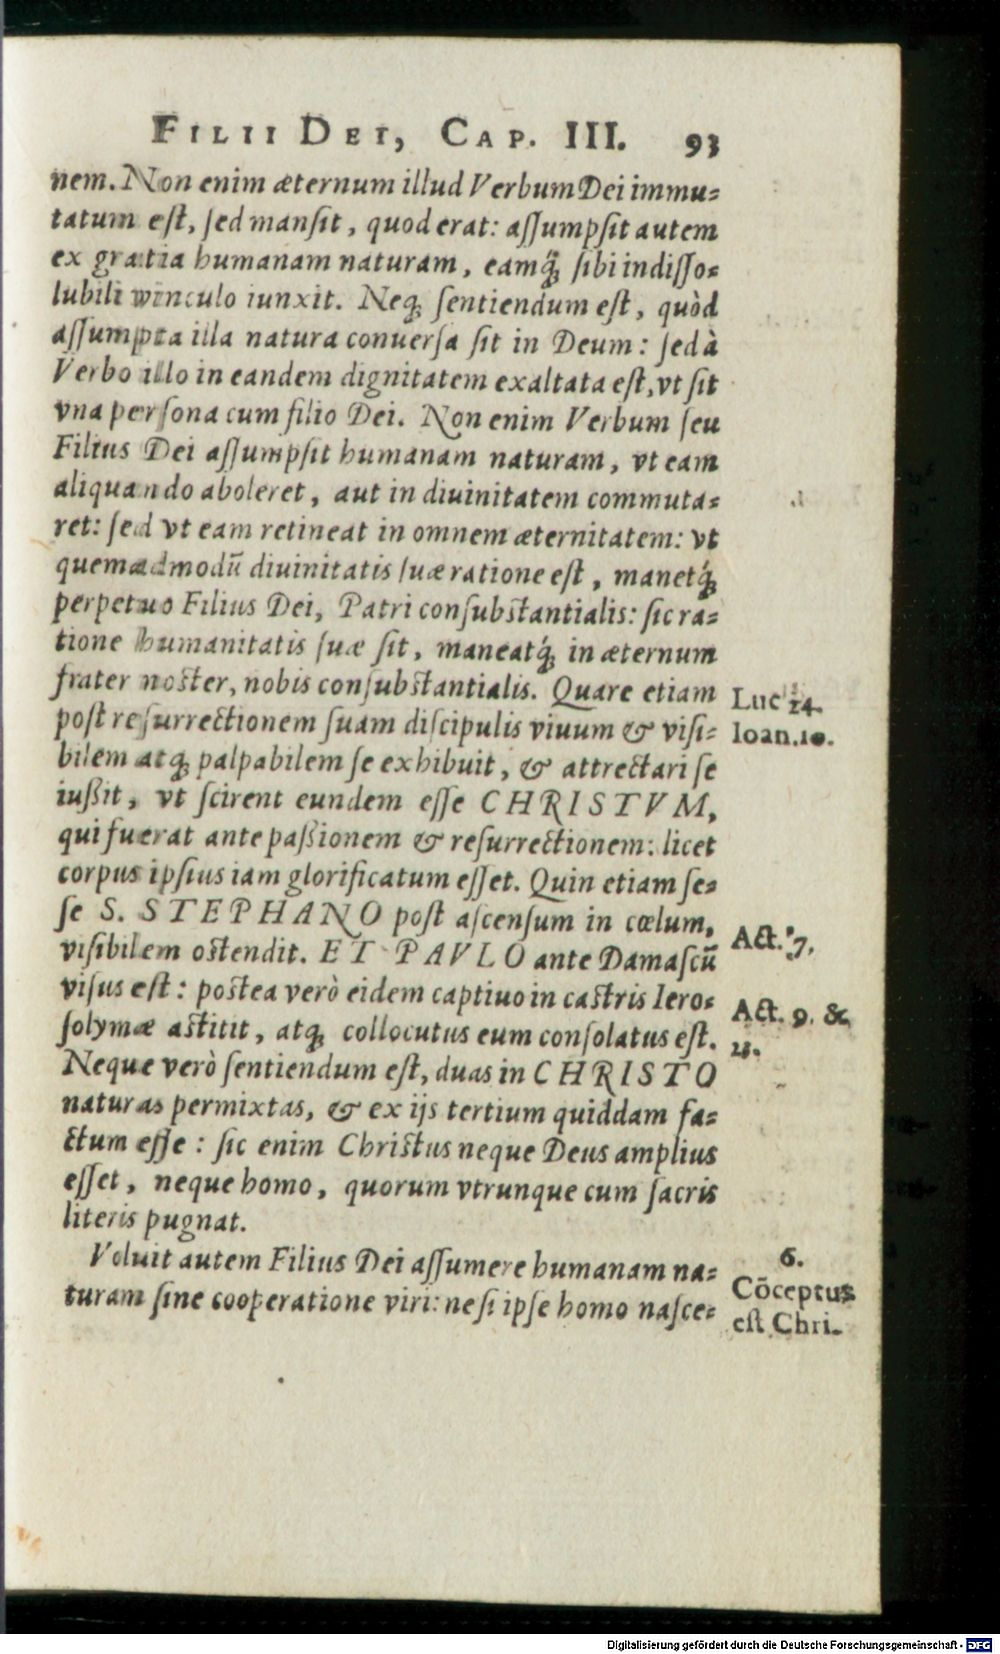 FILII DEI, CAP. III. 93
nem. Non enim æternum illud Verbum Dei immu-
tatum eſt, ſed manſit, quod erat: aſſumpſit autem
ex gratia humanam naturam, eamq́ꝫ ſibi indiſſo-
lubili vinculo iunxit. Neqꝫ ſentiendum eſt, quòd
aſſumpta illa natura conuerſa ſit in Deum: ſed à
Verbo illo in eandem dignitatem exaltata eſt, vt ſit
vna perſona cum filio Dei. Non enim Verbum ſeu
Filius Dei aſſumpſit humanam naturam, vt eam
aliquando aboleret, aut in diuinitatem commuta-
ret: ſed vt eam retineat in omnem æternitatem: vt
quemadmodū diuinitatis ſuæ ratione eſt, manetq́ꝫ
perpetuo Filius Dei, Patri conſubſtantialis: ſic ra-
tione humanitatis ſuæ ſit, maneatq́ꝫ in æternum
frater noſter, nobis conſubſtantialis. Quare etiam
poſt reſurrectionem ſuam diſcipulis viuum & viſi-
bilem atqꝫ palpabilem ſe exhibuit, & attrectari ſe
iußit, vt ſcirent eundem eſſe CHRISTVM,
qui fuerat ante paßionem & reſurrectionem: licet
corpus ipſius iam glorificatum eſſet. Quin etiam ſe-
ſe S. STEPHANO poſt aſcenſum in cœlum,
viſibilem oſtendit. ET PAVLO ante Damaſcū
viſus eſt: poſtea verò eidem captiuo in caſtris Iero-
ſolymæ aſtitit, atqꝫ collocutus eum conſolatus eſt.
Neque verò ſentiendum eſt, duas in CHRISTO
naturas permixtas, & ex ijs tertium quiddam fa-
ctum eſſe: ſic enim Chriſtus neque Deus amplius
eſſet, neque homo, quorum vtrunque cum ſacris
literis pugnat.
Voluit autem Filius Dei aſſumere humanam na-
turam ſine cooperatione viri: ne ſi ipſe homo naſce-
Luc 24.
Ioan. 10.
Act. 7.
Act. 9. &
23.
6.
Cōceptus
eſt Chri-
Digitalisierung gefördert durch die Deutsche Forschungsgemeinschaft - DFG